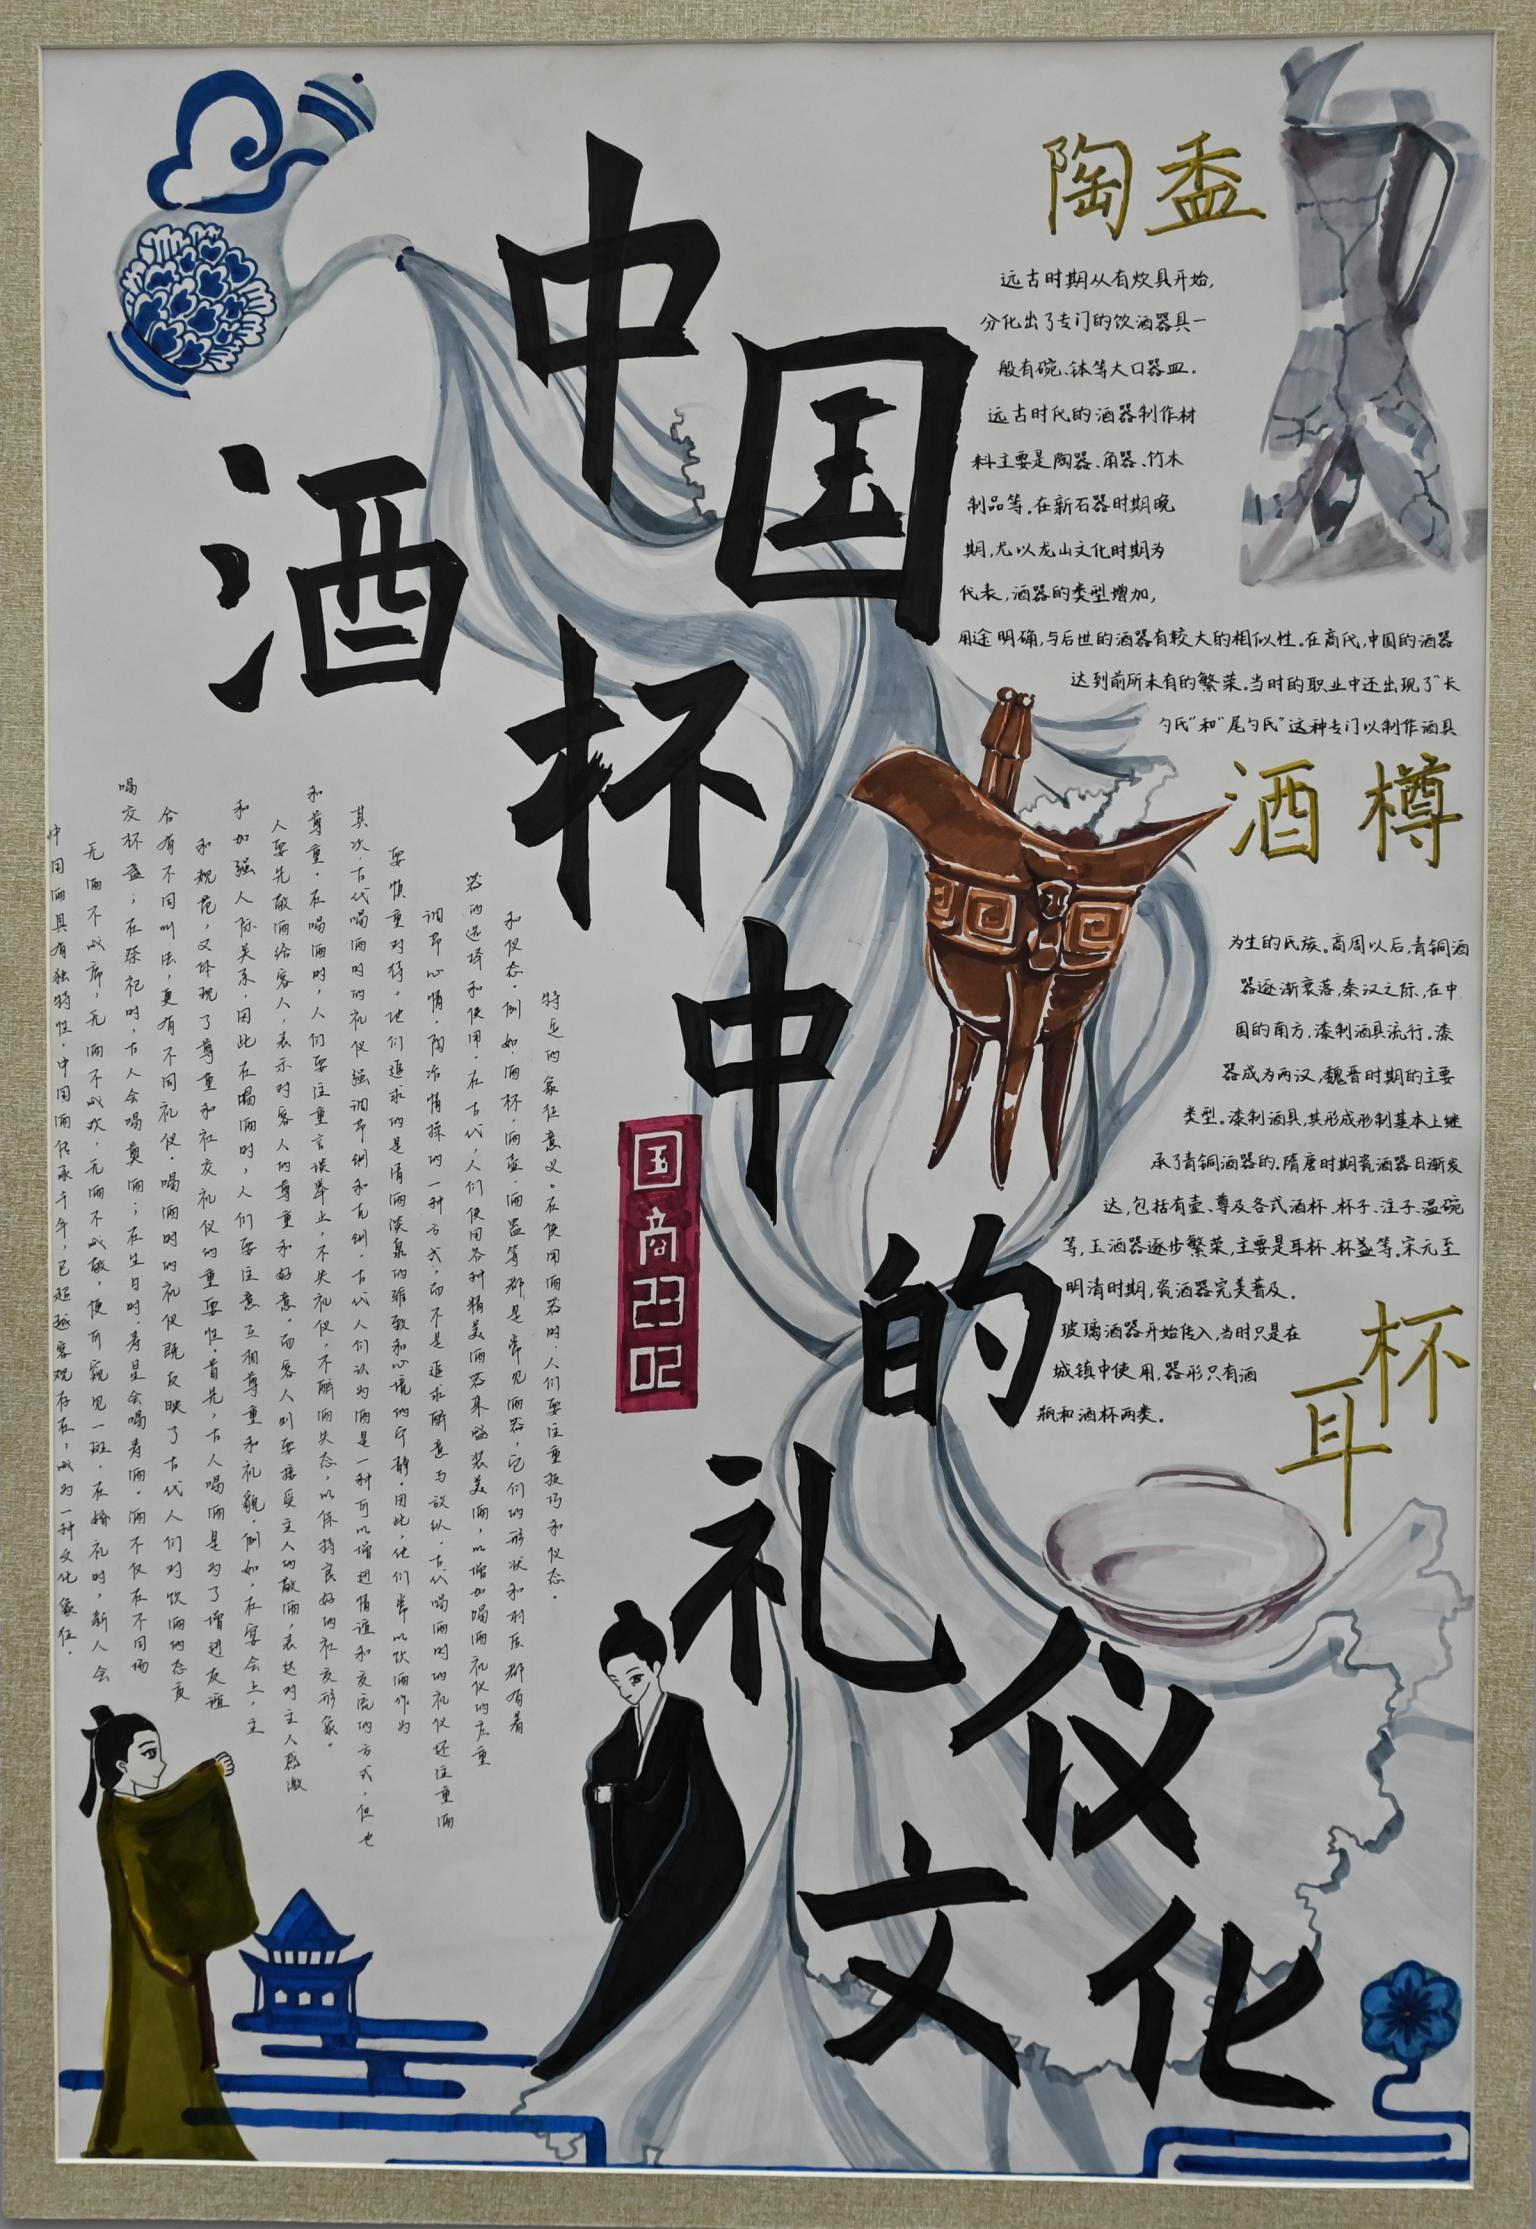 中国
酒杯中的礼仪文化
陶盉
远古时期从有炊具开始,
分化出了专门的饮酒器具一
般有碗、钵等大口器皿.
远古时代的酒器制作材
料主要是陶器、角器、竹木
制品等.在新石器时期晚
期,尤以龙山文化时期为
代表,酒器的类型增加,
用途明确,与后世的酒器有较大的相似性.在商代,中国的酒器
达到前所未有的繁荣.当时的职业中还出现了“长
勺氏”和“尾勺氏”这种专门以制作酒具
酒樽
为生的氏族。商周以后,青铜酒
器逐渐衰落,秦汉之际,在中
国的南方,漆制酒具流行.漆
器成为两汉,魏晋时期的主要
类型.漆制酒具,其形成形制基本上继
承了青铜酒器的.隋唐时期瓷酒器日渐发
达,包括有壶、尊及各式酒杯、杯子、注子、温碗
等,玉酒器逐步繁荣,主要是耳杯、杯盏等.宋元至
明清时期,瓷酒器完美普及.
玻璃酒器开始传入,当时只是在
城镇中使用,器形只有酒
瓶和酒杯两类.
耳杯
国商2302
中国酒具有独特性.中国酒传承千年,已超越客观存在,成为一种文化象征.
无酒不成席,无酒不成欢,无酒不成敬,便可窥见一斑.在婚礼时,新人会
喝交杯盏;在祭祀时,古人会喝奠酒;在生日时,寿星会喝寿酒.酒不仅在不同场
合有不同叫法,更有不同礼仪.喝酒时的礼仪既反映了古代人们对饮酒的态度
和规范,又体现了尊重和社交礼仪的重要性.首先,古人喝酒是为了增进友谊
和加强人际关系.因此在喝酒时,人们要注意互相尊重和礼貌.例如,在宴会上,主
人要先敬酒给客人,表示对客人的尊重和好意.而客人则要接受主人的敬酒,表达对主人感激
和尊重.在喝酒时,人们要注重言谈举止,不失礼仪,不醉酒失态,以保持良好的社交形象.
其次.古代喝酒时的礼仪强调节制和克制.古代人们认为酒是一种可以增进情谊和交流的方式.但也
要慎重对待.他们追求的是清酒淡泉的雅致和心境的宁静.因此,他们常以饮酒作为
调节心情.陶冶情操的一种方式,而不是追求醉意与放纵.古代喝酒时的礼仪还注重酒
器的选择和使用.在古代,人们使用各种精美酒器来盛装美酒,以增加喝酒礼仪的庄重
和仪态.例如,酒杯,酒壶.酒盅等都是常见酒器,它们的形状和材质都有着
特定的象征意义.在使用酒器时.人们要注重技巧和仪态.